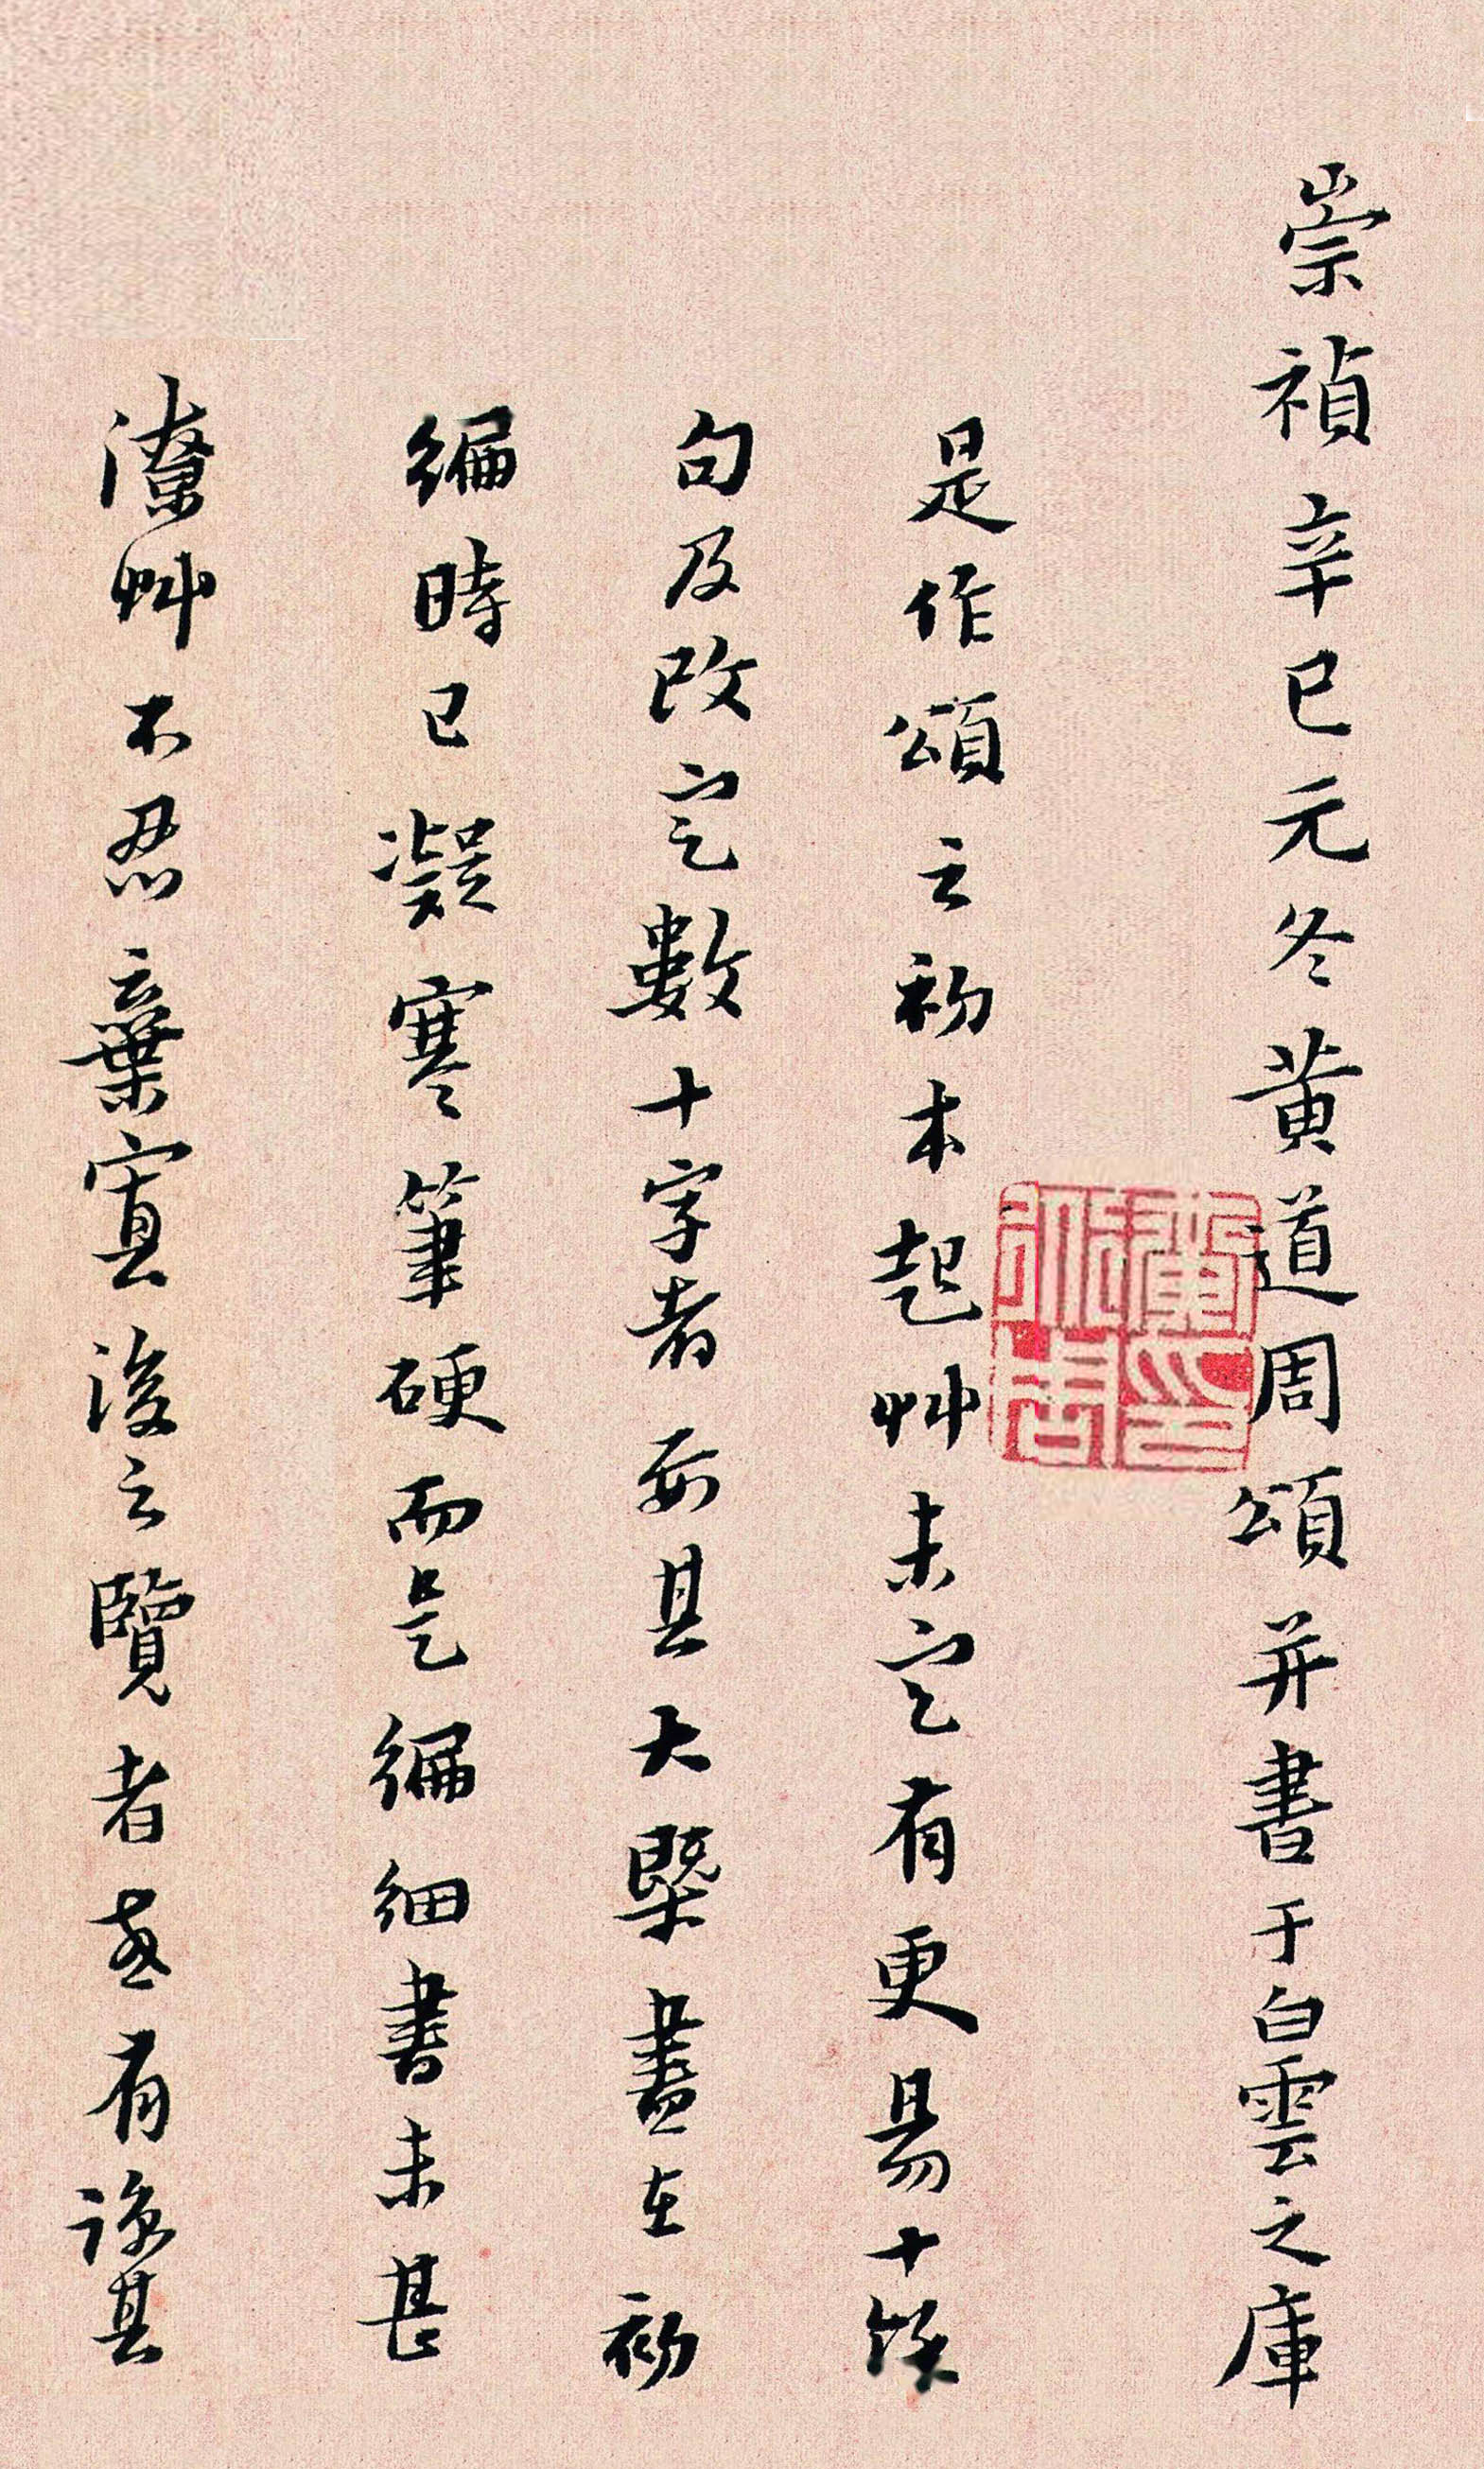 崇禎辛巳元冬黄道周頌并書于白雲之庫
是作頌之初本起艸未定有更易十餘
句及改定數十字者要其大槩盡在初
編時已凝寒筆硬而是編細書未甚
潦艸不忍棄寘後之覽者或有諒其